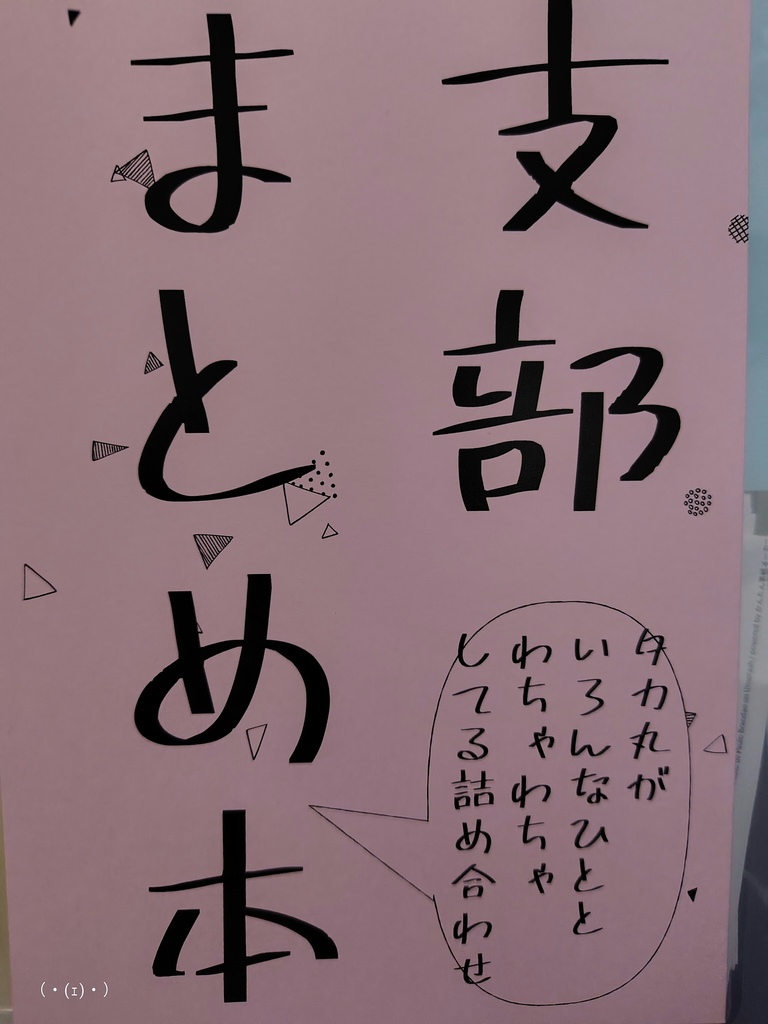 支部
まとめ本
タカ丸が
いろんなひとと
わちゃわちゃ
してる詰め合わせ
（・(ｪ)・）